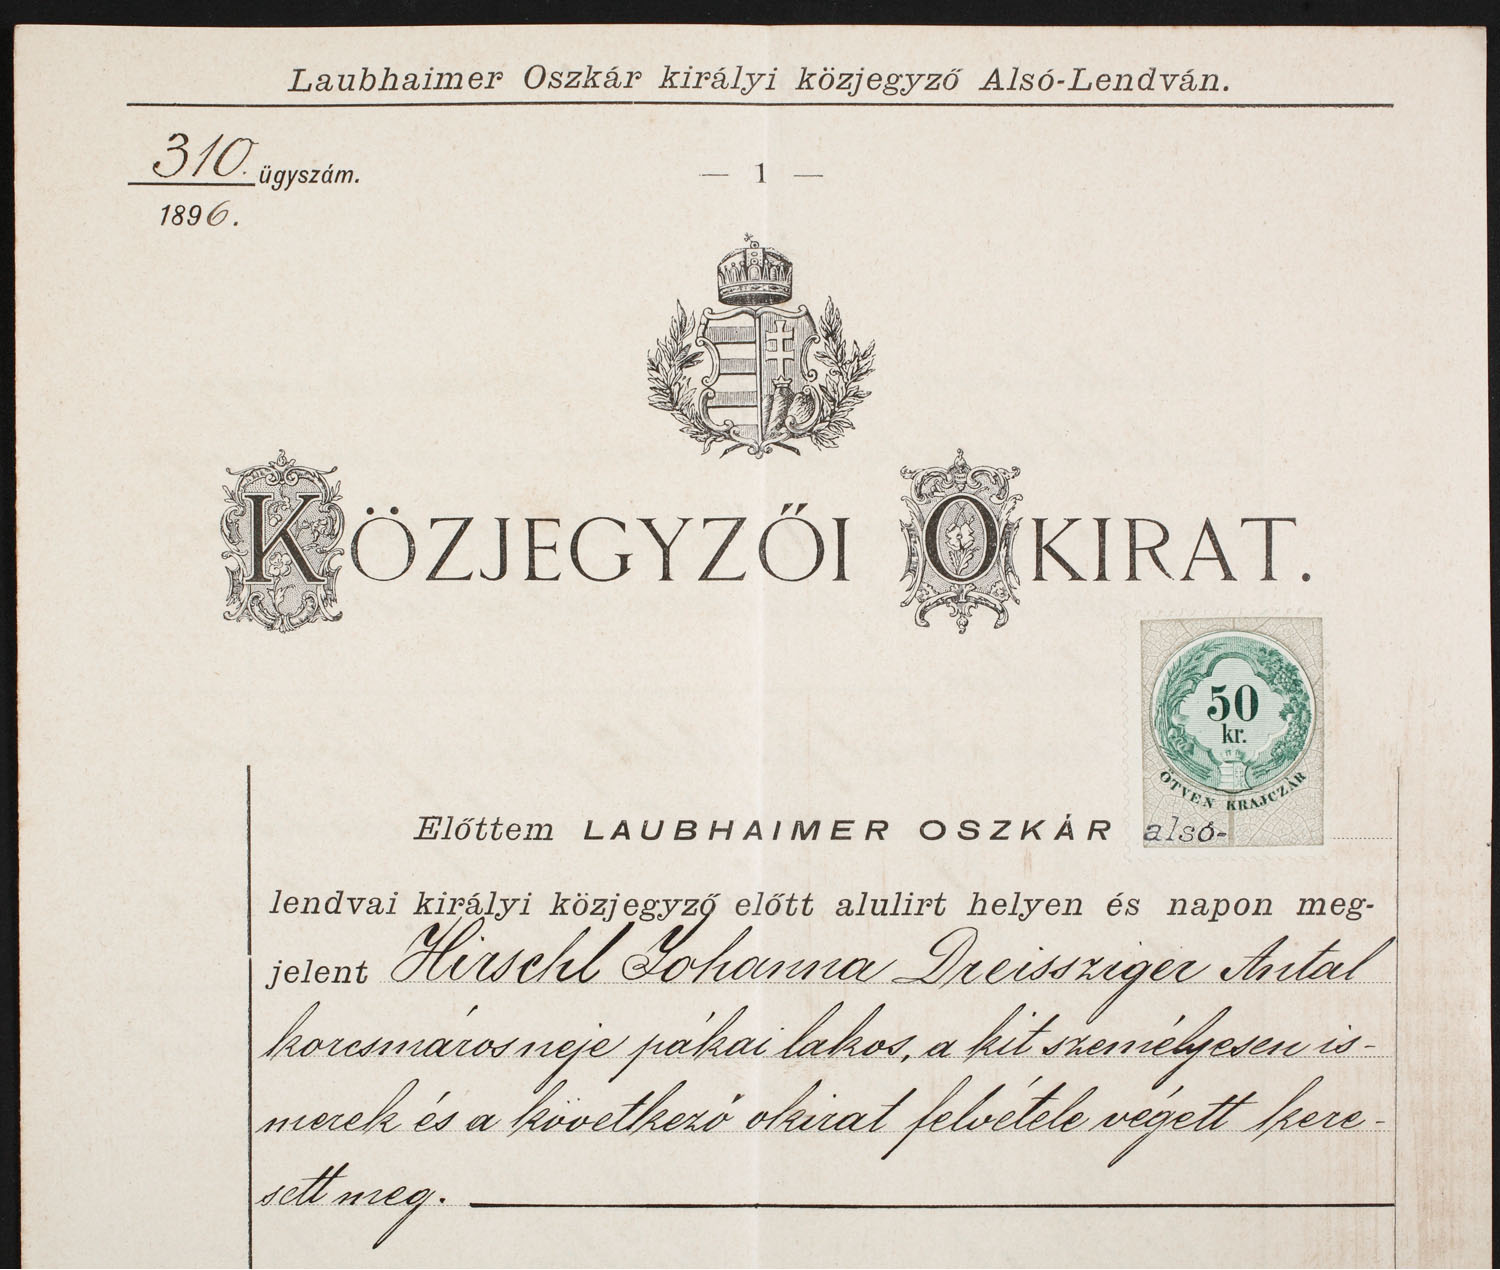 Laubhaimer Oszkár királyi közjegyző Alsó-Lendván.
310. ügyszám.
1896.
— 1 —
KÖZJEGYZŐI OKIRAT.
50
kr.
ÖTVEN KRAJCZÁR
Előttem LAUBHAIMER OSZKÁR alsó-
lendvai királyi közjegyző előtt alulirt helyen és napon meg-
jelent Hirschl Johanna Dreissziger Antal
korcsmáros neje pákai lakos, a kit személyesen is-
merek és a következő okirat felvétele végett kere-
sett meg.